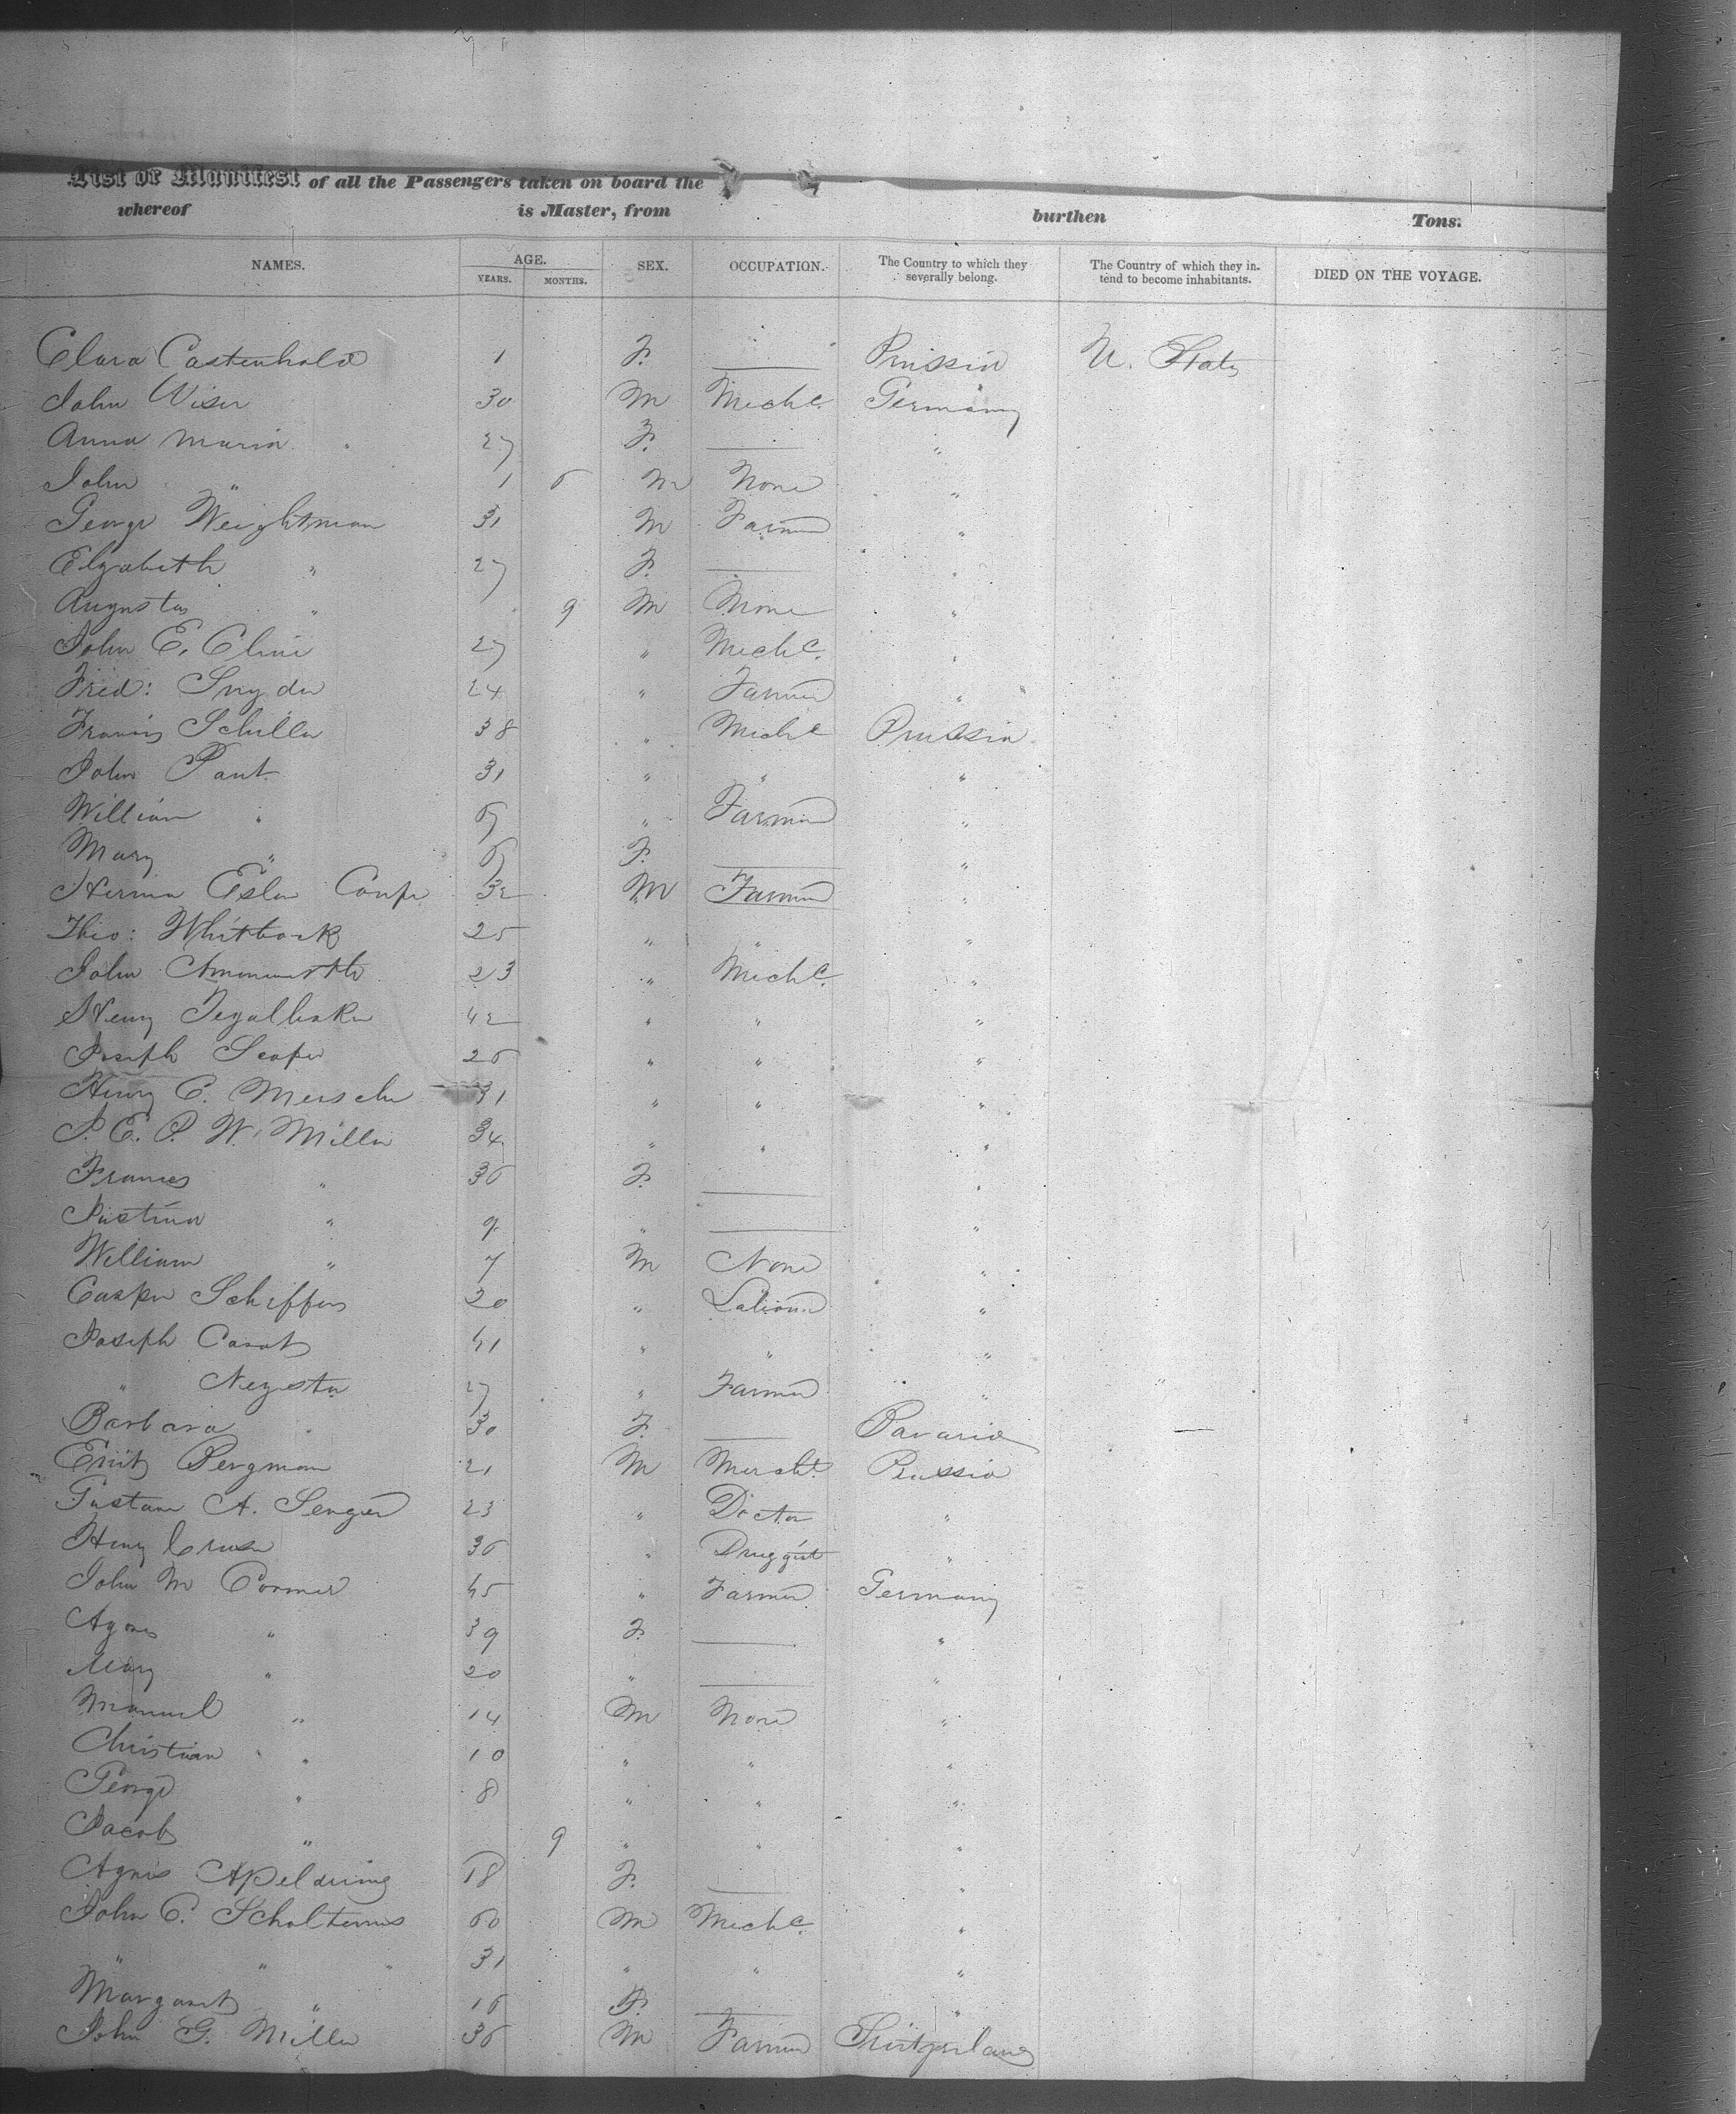 List or Manifest of all the Passengers taken on board the
whereof is Master, from burthen Tons.
NAMES. AGE. YEARS. MONTHS. SEX. OCCUPATION. The Country to which they severally belong. The Country of which they intend to become inhabitants. DIED ON THE VOYAGE.
Clara Castenhold 1 F. — Prussia U. States
John Wiser 30 M Mechc. Germany
Anna Maria " 27 F. — "
John " 1 6 M None "
George Weightman 31 M Farmer "
Elizabeth " 27 F. — "
Augustus " 9 M None "
John E. Cline 27 " Mechc. "
Fred: Snyder 24 " Farmer "
Francis Schiller 38 " Mechc Prussia
John Paut 31 " " "
William " 67 " Farmer "
Mary " 67 F. — "
Herman 32 M Farmer "
Theo: Whitback 25 " " "
John 23 " Mechc. "
Henry 42 " " "
Joseph 26 " " "
Henry C. Mersch 31 " " "
J. E. P. W. Miller 34 " " "
Frances " 36 F. — "
Justina " 9 " — "
William " 7 M None "
Casper Schiffers 20 " Labourer "
Joseph 41 " " "
" 27 " Farmer "
Barbara " 30 F. — Bavaria —
Bergman 21 M Mercht. Prussia
Gustave A. Senger 23 " Doctor "
Henry Cruse 36 " Druggist "
John M Cormer 45 " Farmer Germany
Agnes " 39 F. — "
Mary " 20 " — "
Manuel " 14 M None "
Christian " 10 " " "
George " 8 " " "
Jacob " 9 " " "
Agnes Apeldering 18 F. — "
John C. Scholtemus 60 M Mechc. "
" " " 31 " " "
Margaret " 16 F. — "
John G. Miller 36 M Farmer Switzerland